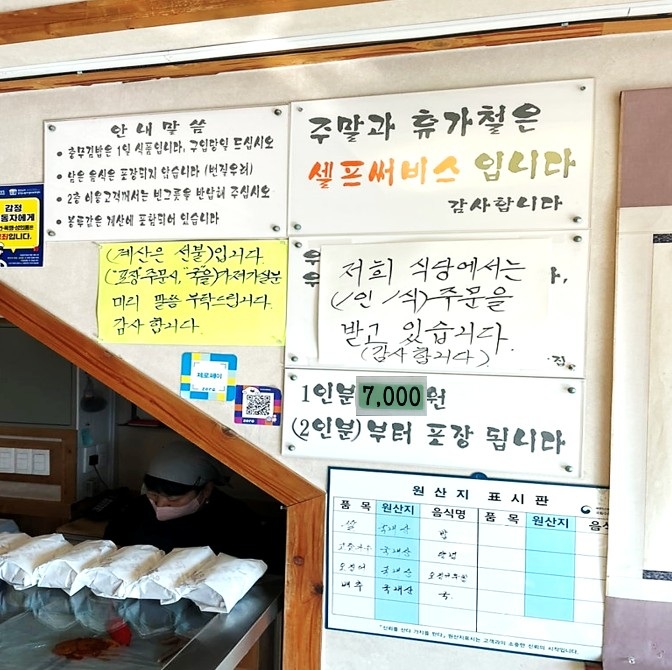 안내말씀
• 충무김밥은 1일 식품입니다, 구입당일 드십시오
• 남은 음식은 포장되지 않습니다 (변질우려)
• 2층 이용고객께서는 빈그릇을 반납해 주십시오
• 봉투값은 계산에 포함되어 있습니다
주말과 휴가철은
셀프써비스 입니다
감사합니다
감정
동자에게
입니다.
(계산은 선불)입니다.
("포장"주문시, 국물)가져가실분
미리 말씀 부탁드립니다.
감사 합니다.
저희 식당에서는
(1인 1식)주문을
받고 있습니다.
(감사합니다)
제로페이
zero
1인분 7,000원
(2인분)부터 포장 됩니다
원산지 표시판
품 목 원산지 음식명 품 목 원산지 음식
쌀 국내산 밥
국내산
오징어 국내산 오징어무침
배추 국내산 국